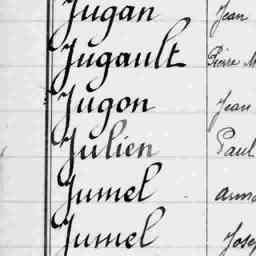 Jugan Jean
Jugault Pierre M
Jugon Jean
Julien Paul
Jumel
Jumel Josep